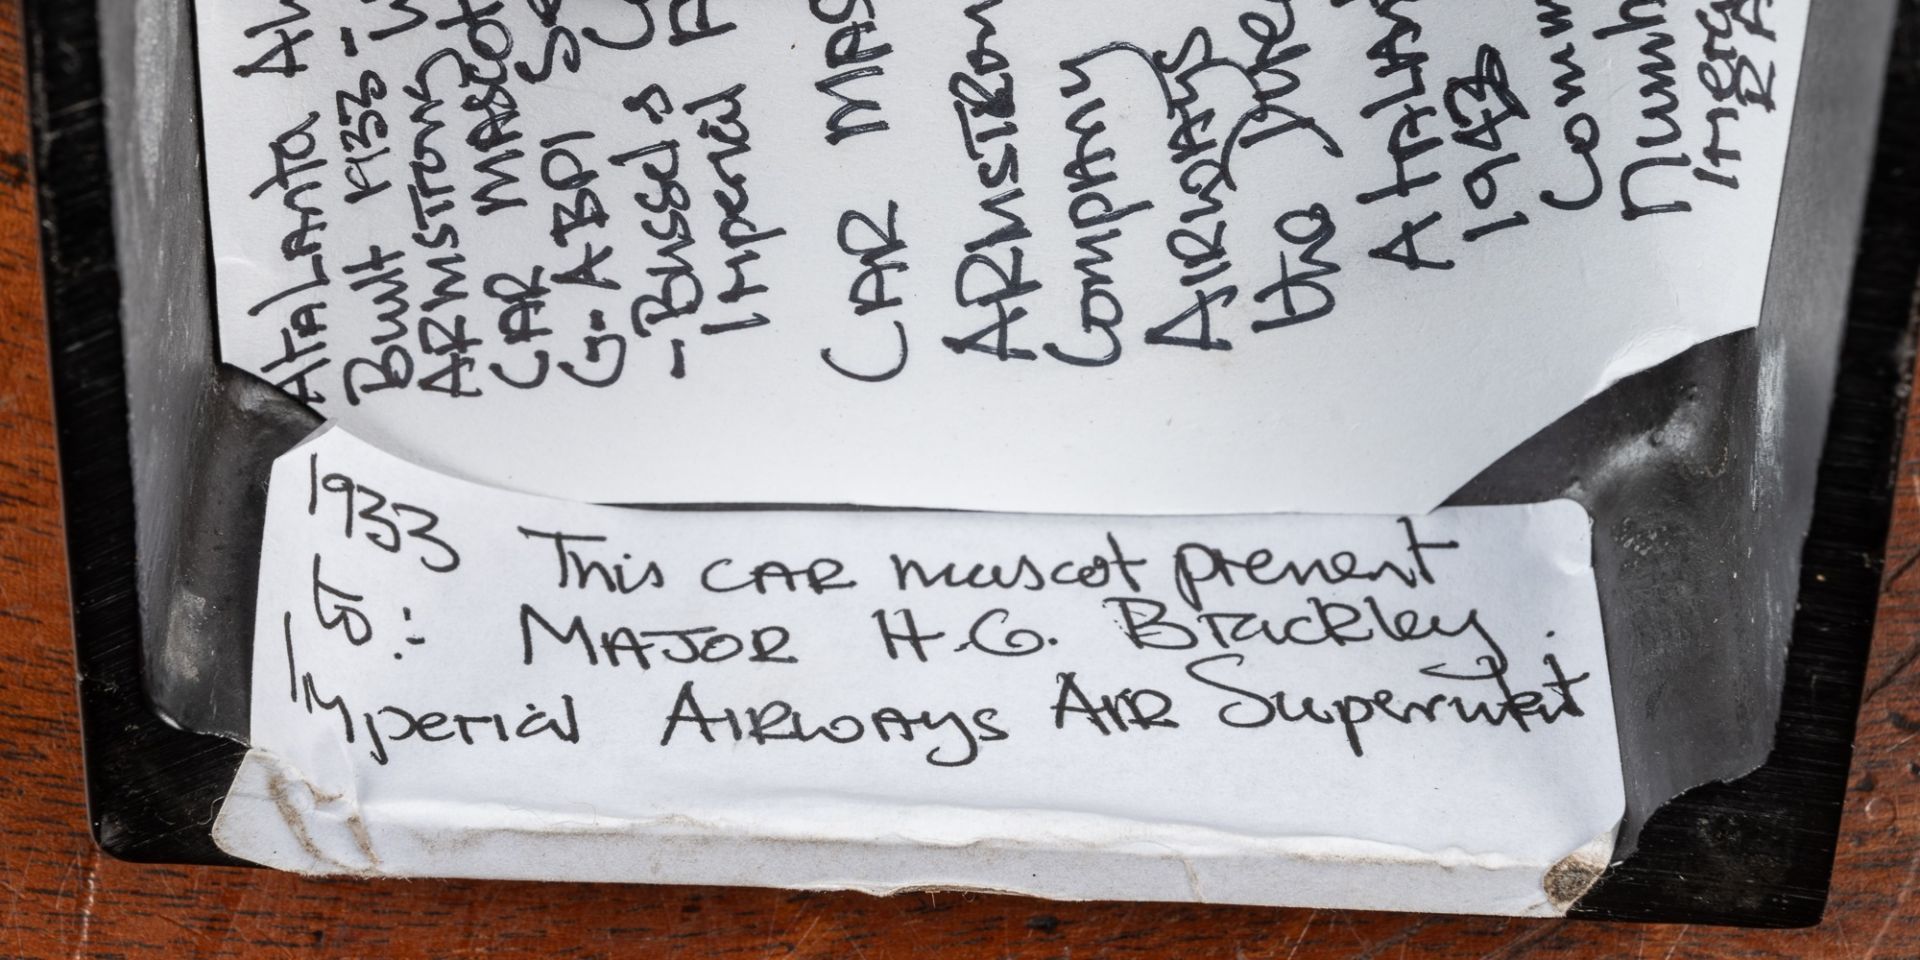 Atalanta
Built 1933 -
ARMSTRONG
CAR MASCOT
G-ABPI
- Brussels
Imperial
CAR
ARMSTRON
Company
AIRWAYS
two
Atalan
1943
Com
numb
Imper
RA
1933 This CAR mascot prenent
EST :- MAJOR H.G. Brackley.
Imperial AIRWAYS AIR Superintent